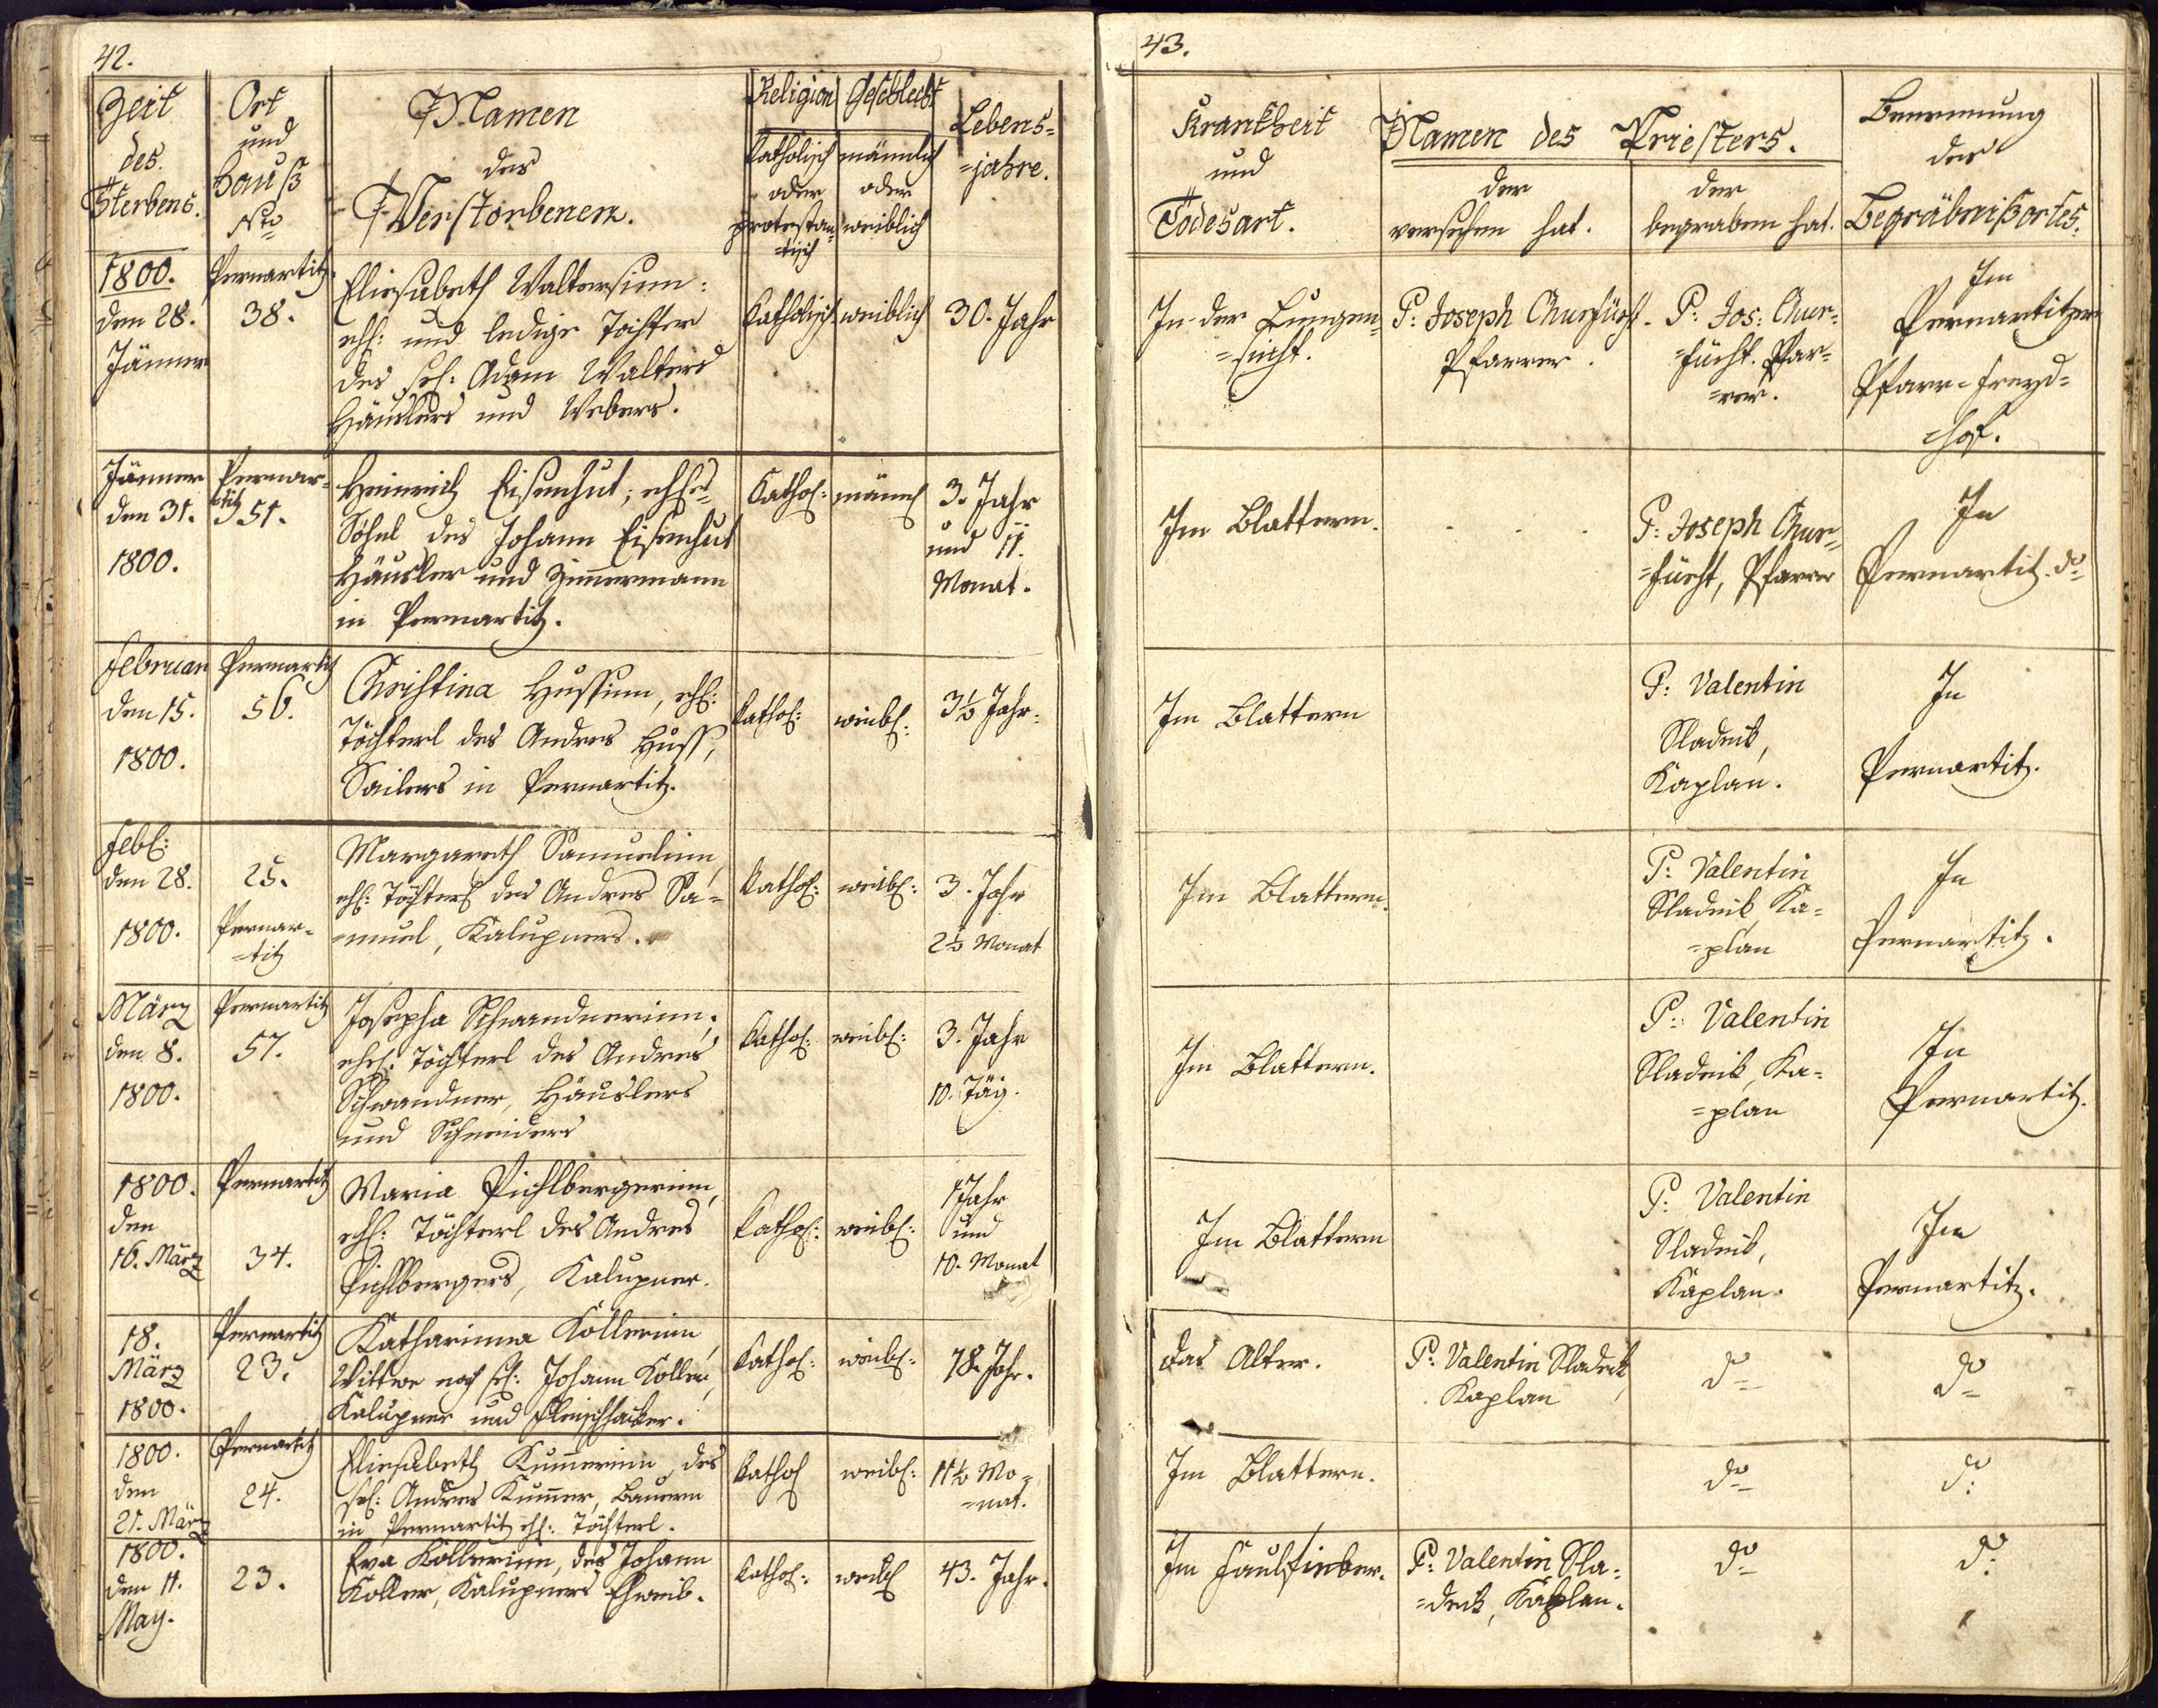 42.
Zeit des Sterbens.
Ort und Hauß Nro
Namen des Verstorbenen.
Religion Katholisch oder protestan=tisch
Geschlecht männlich oder weiblich
Lebens=
=jahre.
1800.
den 28.
Jänner
Pernartitz.
38.
Eliesabeth Waltersinn:
ehl: und ledige Tochter
des sel: Adam Walters
Häuslers und Webers.
Katholisch
weiblich
30. Jahr
Jänner
den 31.
1800.
Pernar=
=titz 51.
Heinrich Eisenhut, ehl
Söhnl des Johann Eisenhut
Häusler und Zimmermann
in Pernartitz.
Kathol:
männl
3. Jahr
und 11.
Monat.
Februar
den 15.
1800.
Pernartitz
56.
Christina Hussinn, ehl:
Töchterl des Andres Huss,
Sailers in Pernartitz.
Kathol:
weibl:
3½ Jahr.
Febl:
den 28.
1800.
25.
Pernar=
=titz
Margareth Samuelinn,
ehl: Töchterl des Andres Sa=
=muel, Kalupners.
Kathol:
weibl:
3. Jahr
2½ Monat
März
den 8.
1800.
Pernartitz
57.
Josepha Schwandnerinn,
ehel: Töchterl des Andres
Schwandner, Häuslers
und Schneiders
Kathol:
weibl:
3. Jahr
10. Täg.
1800.
den
16. März
Pernartitz
34.
Maria Pichlbergerinn,
ehl: Töchterl des Andres
Pichlbergers, Kalupner.
Kathol:
weibl:
1 Jahr
und
10. Monat
18.
März
1800.
Pernartitz
23.
Katharinna Kollerinn,
Wittwe nach sel: Johann Koller,
Kalupner und Fleischhacker.
Kathol:
weibl:
78. Jahr.
1800.
den
21. März
Pernartitz
24.
Eliesabeth Kummerinn, des
sel: Andres Kummer, Bauern
in Pernartitz ehl: Töchterl.
Kathol
weibl:
11½ Mo=
=nat.
1800.
den 11.
May.
23.
Eva Kollerinn, des Johann
Koller, Kalupners Eheweib.
Kathol:
weibl
43. Jahr.
43.
Krankheit und Todesart.
Namen des Priesters.
der versehen hat.
der begraben hat.
Benennung des Begräbnißortes.
In der Lungen=
=sucht.
P: Joseph Churfürst
Pfarrer.
P: Jos: Chur=
=fürst. Pfar=
=rer.
Im
Pernartitzer
Pfarr=Freyd=
=hof.
Im Blattern.
P: Joseph Chur=
=fürst, Pfarrer
In
Pernartitz. do
Im Blattern
P: Valentin
Sladek,
Kaplan.
In
Pernartitz.
Im Blattern.
P: Valentin
Sladek, Ka=
=plan
In
Pernartitz.
Im Blattern.
P: Valentin
Sladek, Ka=
=plan
In
Pernartitz.
Im Blattern
P: Valentin
Sladek,
Kaplan.
Im
Pernartitz.
Das Alter.
P: Valentin Sladek,
Kaplan
do
do
Im Blattern.
do
do
Im Faulfieber.
P: Valentin Sla=
=dek, Kaplan.
do
do